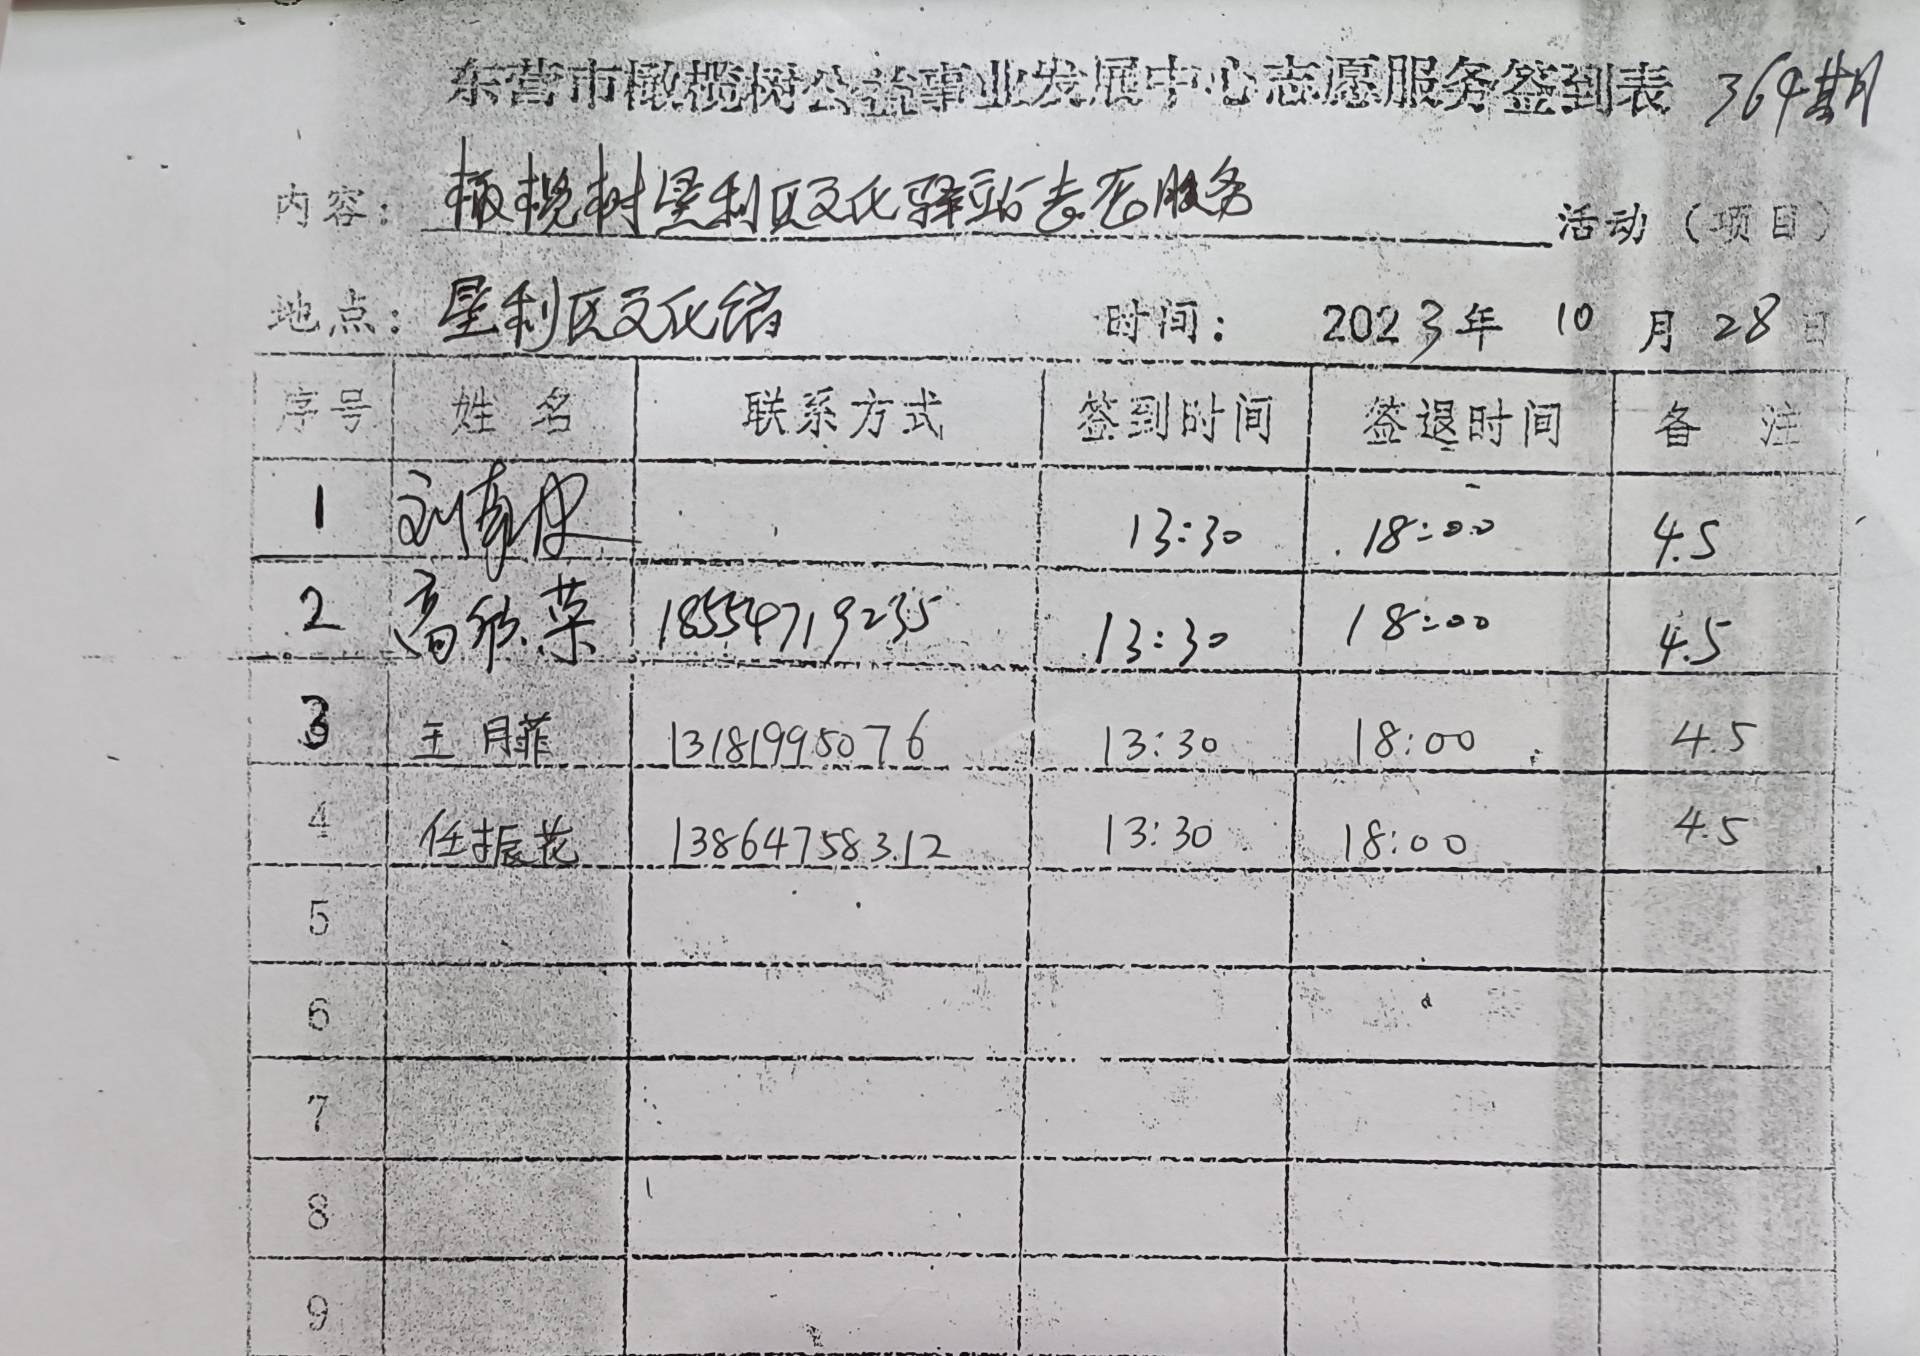 东营市橄榄树公益事业发展中心志愿服务签到表 364期
内容: 橄榄树垦利区文化驿站志愿服务 活动(项目)
地点: 垦利区文化馆 时间: 2023年 10 月 28 日
序号 姓名 联系方式 签到时间 签退时间 备注
1 刘 13:30 18:00 4.5
2 高 菜 18554719235 13:30 18:00 4.5
3 王月菲 13181995076 13:30 18:00 4.5
4 任振花 13864758312 13:30 18:00 4.5
5
6
7
8
9